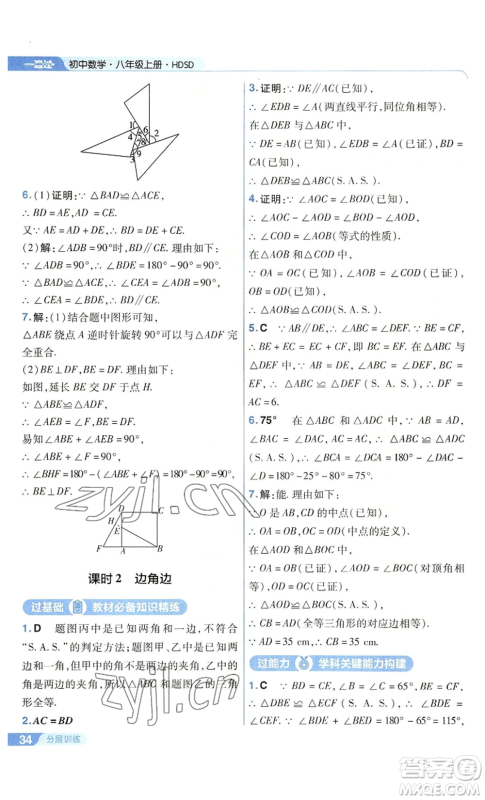 一遍过
初中数学·八年级上册·HDSD
1 4 6
5 2
7 8
3 9
6.(1)证明:∵ △BAD≌△ACE,
∴ BD=AE,AD=CE.
又∵ AE=DE+AD,∴ BD=DE+CE.
(2)解:∠ADB=90°时,BD∥CE. 理由如下:
∵ ∠ADB=90°,∴ ∠BDE=180°-90°=90°.
∵ △BAD≌△ACE,∴ ∠CEA=∠ADB=90°,
∴ ∠CEA=∠BDE,∴ BD∥CE.
7.解:(1)结合题中图形可知,
△ABE 绕点 A 逆时针旋转 90°可以与△ADF 完
全重合.
(2)BE⊥DF,BE=DF. 理由如下:
如图,延长 BE 交 DF 于点 H.
∵ △ABE≌△ADF,
∴ BE=DF,∠AEB=∠F.
易知∠ABE+∠AEB=90°,
∴ ∠ABE+∠F=90°,
∴ ∠BHF=180°-(∠ABE+∠F)=90°,
∴ BE⊥DF.
D C
H
E
F A B
课时2 边角边
过基础 教材必备知识精练
1.D 题图丙中是已知两角和一边,不符合
“S.A.S.”的判定方法;题图甲、乙中是已知两边
和一角,但甲中的角不是两边的夹角,乙中的角
是两边的夹角,所以△ABC 和题图乙中的三角
形全等.
2.AC=BD
34 分层训练
3.证明:∵ DE∥AC(已知),
∴ ∠EDB=∠A(两直线平行,同位角相等).
在△DEB 与△ABC 中,
∵ DE=AB(已知),∠EDB=∠A(已证),BD=
CA(已知),
∴ △DEB≌△ABC(S.A.S.).
4.证明:∵ ∠AOC=∠BOD(已知),
∴ ∠AOC-∠AOD=∠BOD-∠AOD,
即∠COD=∠AOB(等式的性质).
在△AOB 与△COD 中,
∵ OA=OC(已知),∠AOB=∠COD(已证),
OB=OD(已知),
∴ △AOB≌△COD(S.A.S.).
5.C ∵ AB∥DE,∴ ∠B=∠DEF. ∵ BE=CF,
∴ BE+EC=EC+CF,∴ BC=EF. 在△ABC 和
△DEF 中,∵ AB=DE,∠B=∠DEF,BC=EF,
∴ △ABC≌△DEF(S.A.S.),∴ DF=
AC=6.
6.75° 在△ABD 和△ACE 中,∵ AB=AC,
∠A=∠A,AD=AE,∴ △ABD≌△ACE
(S.A.S.),∴ ∠B=∠C=25°,∴ ∠ADB=
180°-25°-80°=75°.
7.解:能. 理由如下:
∵ O 是 AB,CD 的中点(已知),
∴ OA=OB,OC=OD(中点的定义).
在△AOD 与△BOC 中,
∵ OA=OB(已证),∠AOD=∠BOC(对顶角相
等),OD=OC(已证),
∴ △AOD≌△BOC(S.A.S.),
∴ BC=AD(全等三角形的对应边相等).
∵ AD=35 cm(已知),
∴ BC=35 cm(等量代换).
过能力 学科关键能力构建
1.C ∵ AB=AC,∴ ∠B=∠C=65°,BE=CF,
∴ △BDE≌△CEF(S.A.S.),
∴ ∠BDE=∠CEF. ∵ ∠CEF+
∠DEF=∠BDE+∠B,∴ ∠DEF=
zyjl.cn
zyjl.cn